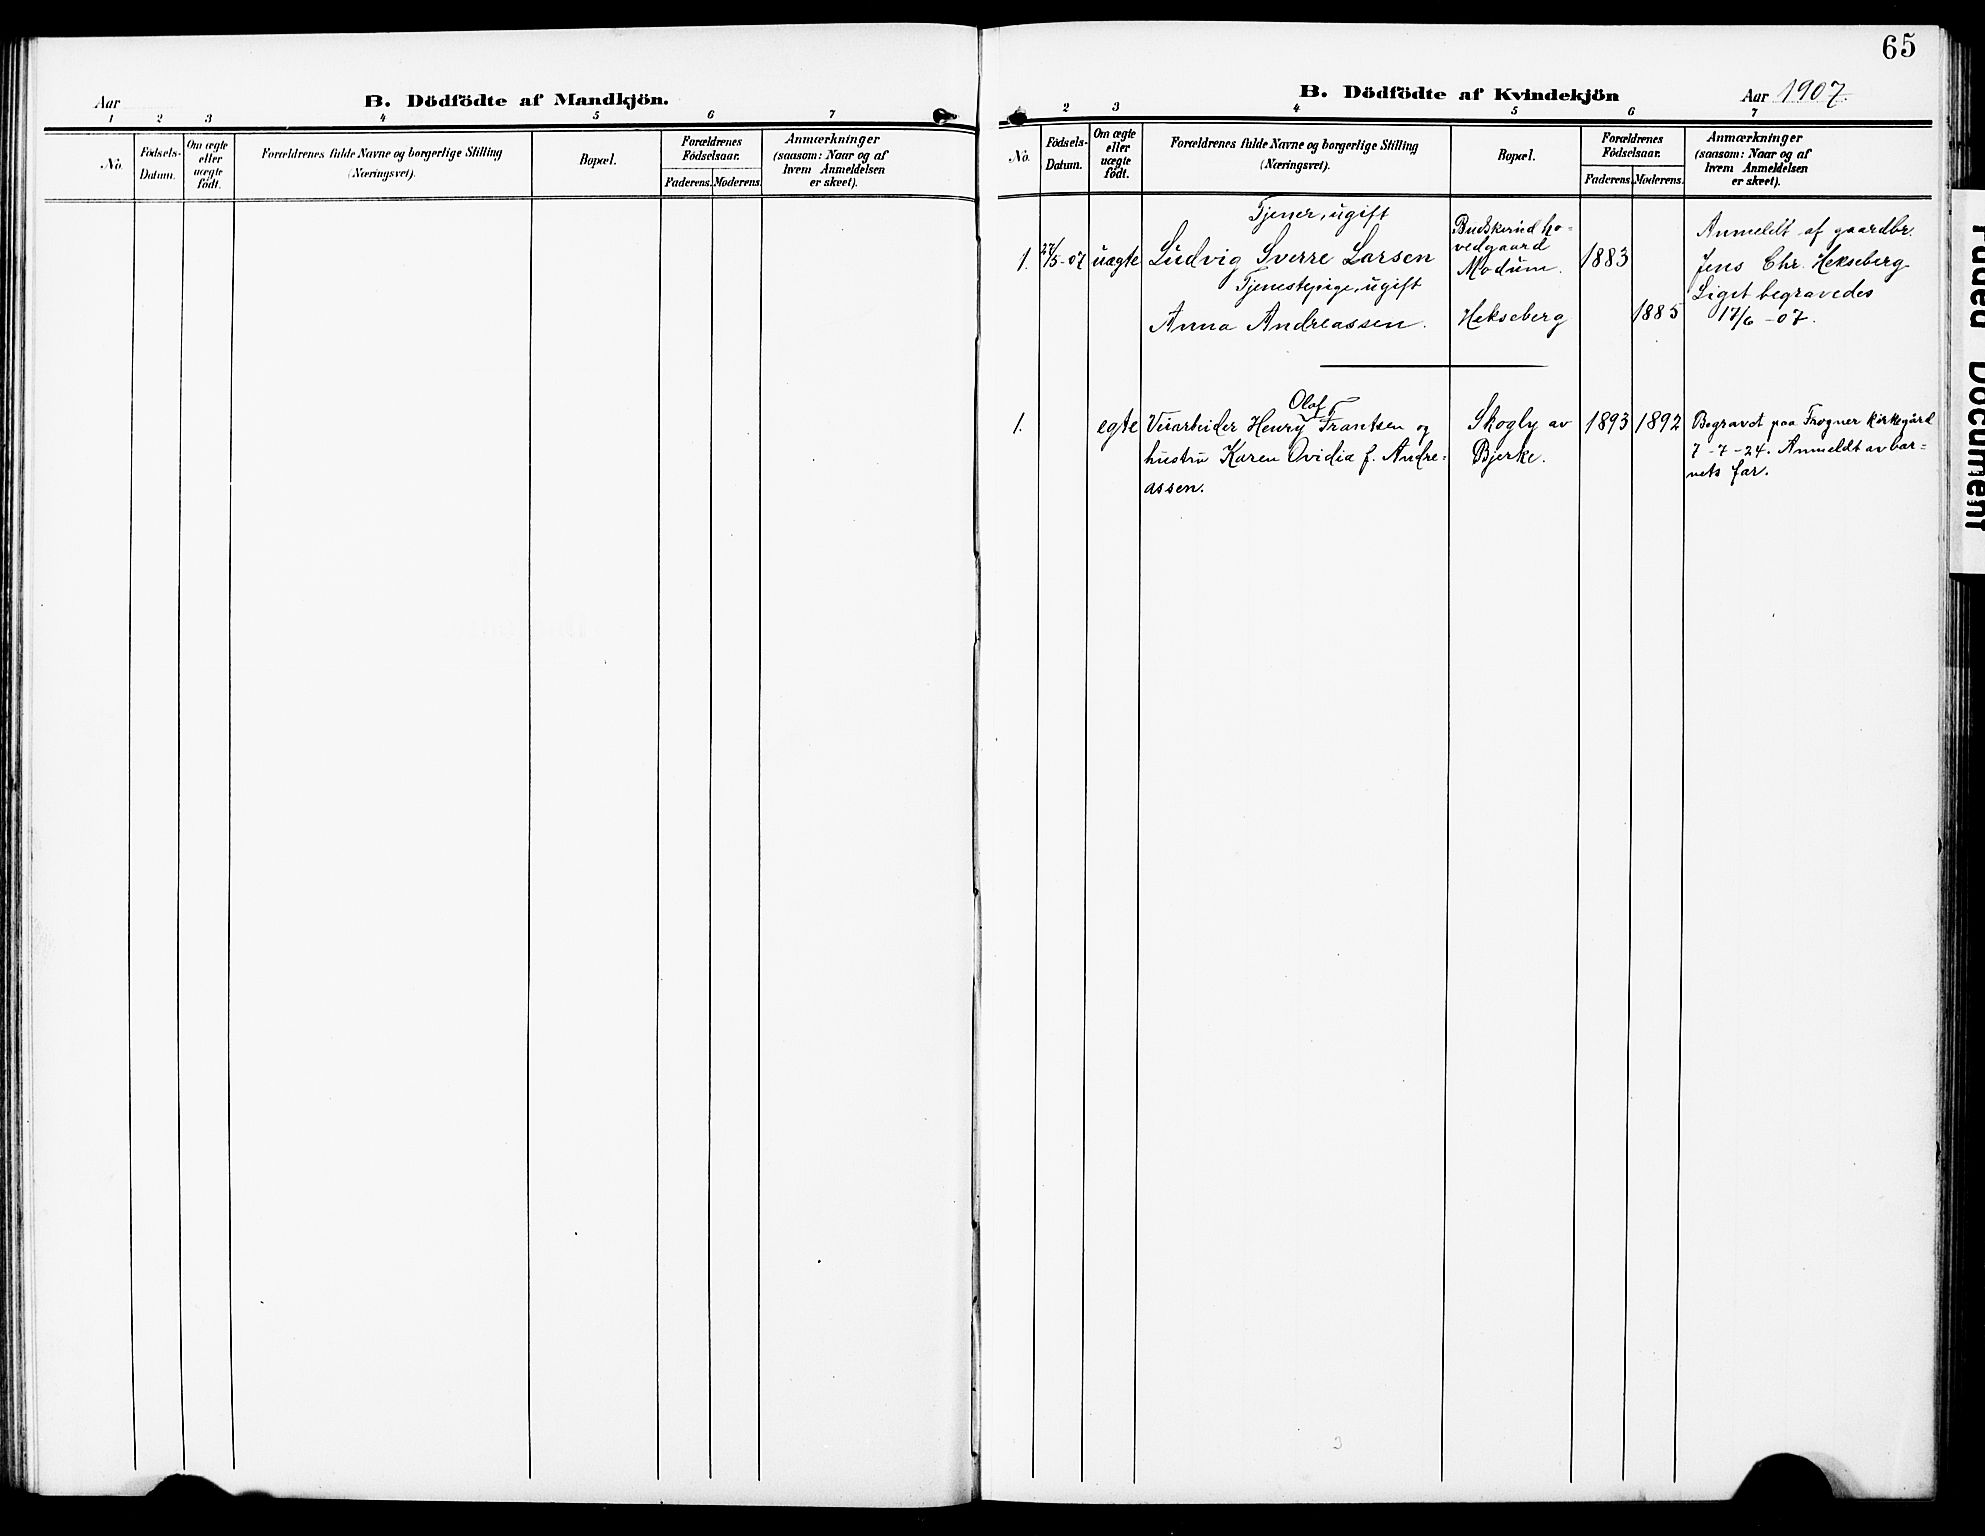 Aar
B. Dödfödte af Mandkjön.
1 2 3 4 5 6 7
No.
Födsels-
Datum.
Om ægte
eller
uægte
födt.
Forældrenes fulde Navne og borgerlige Stilling
(Næringsvei).
Bopæl.
Forældrenes
Födselsaar.
Faderens. Moderens.
Anmærkninger
(saasom: Naar og af
hvem Anmeldelsen
er skeet).
65
B. Dödfödte af Kvindekjön
Aar 1907.
2 3 4 5 6 7
No.
Födsels-
Datum.
Om ægte
eller
uægte
födt.
Forældrenes fulde Navne og borgerlige Stilling
(Næringsvei).
Bopæl.
Forældrenes
Födselsaar.
Faderens. Moderens.
Anmærkninger
(saasom: Naar og af
hvem Anmeldelsen
er skeet).
1. 27/5-07 uægte
Tjener, ugift
Ludvig Sverre Larsen
Tjenestepige, ugift
Anna Andreassen.
Buskerud ho-
vedgaard
Modum.
Hekseberg
1883
1885
Anmeldt af gaardbr.
Jens Chr. Hekseberg
Liget begravedes
17/6-07.
1. egte
Olaf
Veiarbeider Henry Frantsen og
hustru Karen Ovidia f. Andre-
assen.
Skogly av
Bjerke.
1893 1892
Begravet paa Frogner kirkegård
7-7-24. Anmeldt av bar-
nets far.
Faded Document